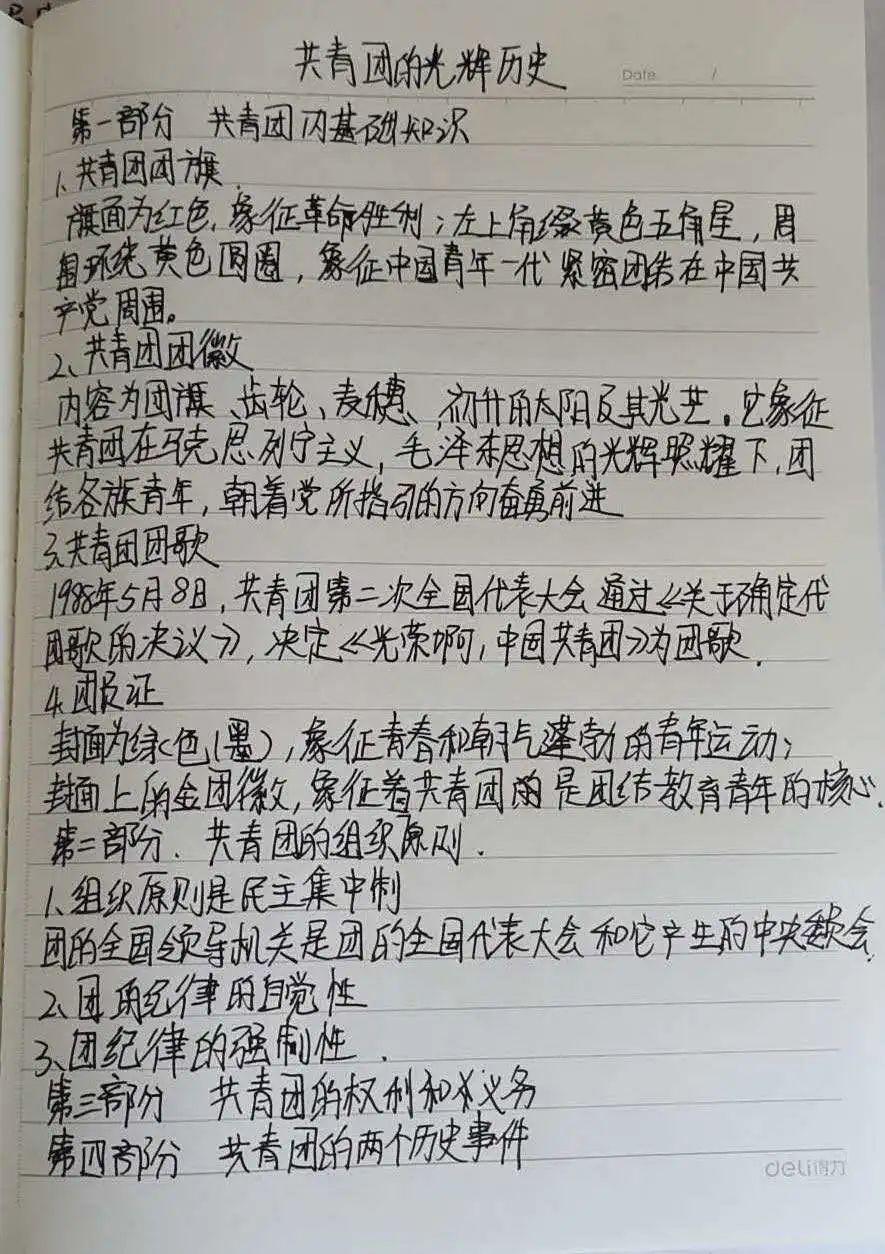 共青团的光辉历史
Date /
第一部分 共青团内基础知识
1、共青团团旗
旗面为红色,象征革命胜利;左上角缀黄色五角星,周
围环绕黄色圆圈,象征中国青年一代紧密团结在中国共
产党周围。
2、共青团团徽
内容为团旗、齿轮、麦穗、初升的太阳及其光芒。它象征
共青团在马克思列宁主义,毛泽东思想的光辉照耀下,团
结各族青年,朝着党所指引的方向奋勇前进
3、共青团团歌
1988年5月8日,共青团第二次全国代表大会通过《关于确定代
团歌的决议》,决定《光荣啊,中国共青团》为团歌.
4.团员证
封面为绿色(墨),象征青春和朝气蓬勃的青年运动;
封面上的金团徽,象征着共青团的是团结教育青年的核心.
第二部分.共青团的组织原则.
1、组织原则是民主集中制
团的全国领导机关是团的全国代表大会和它产生的中央委会.
2、团的纪律的自觉性
3、团纪律的强制性.
第三部分 共青团的权利和义务
第四部分 共青团的两个历史事件
deli得力